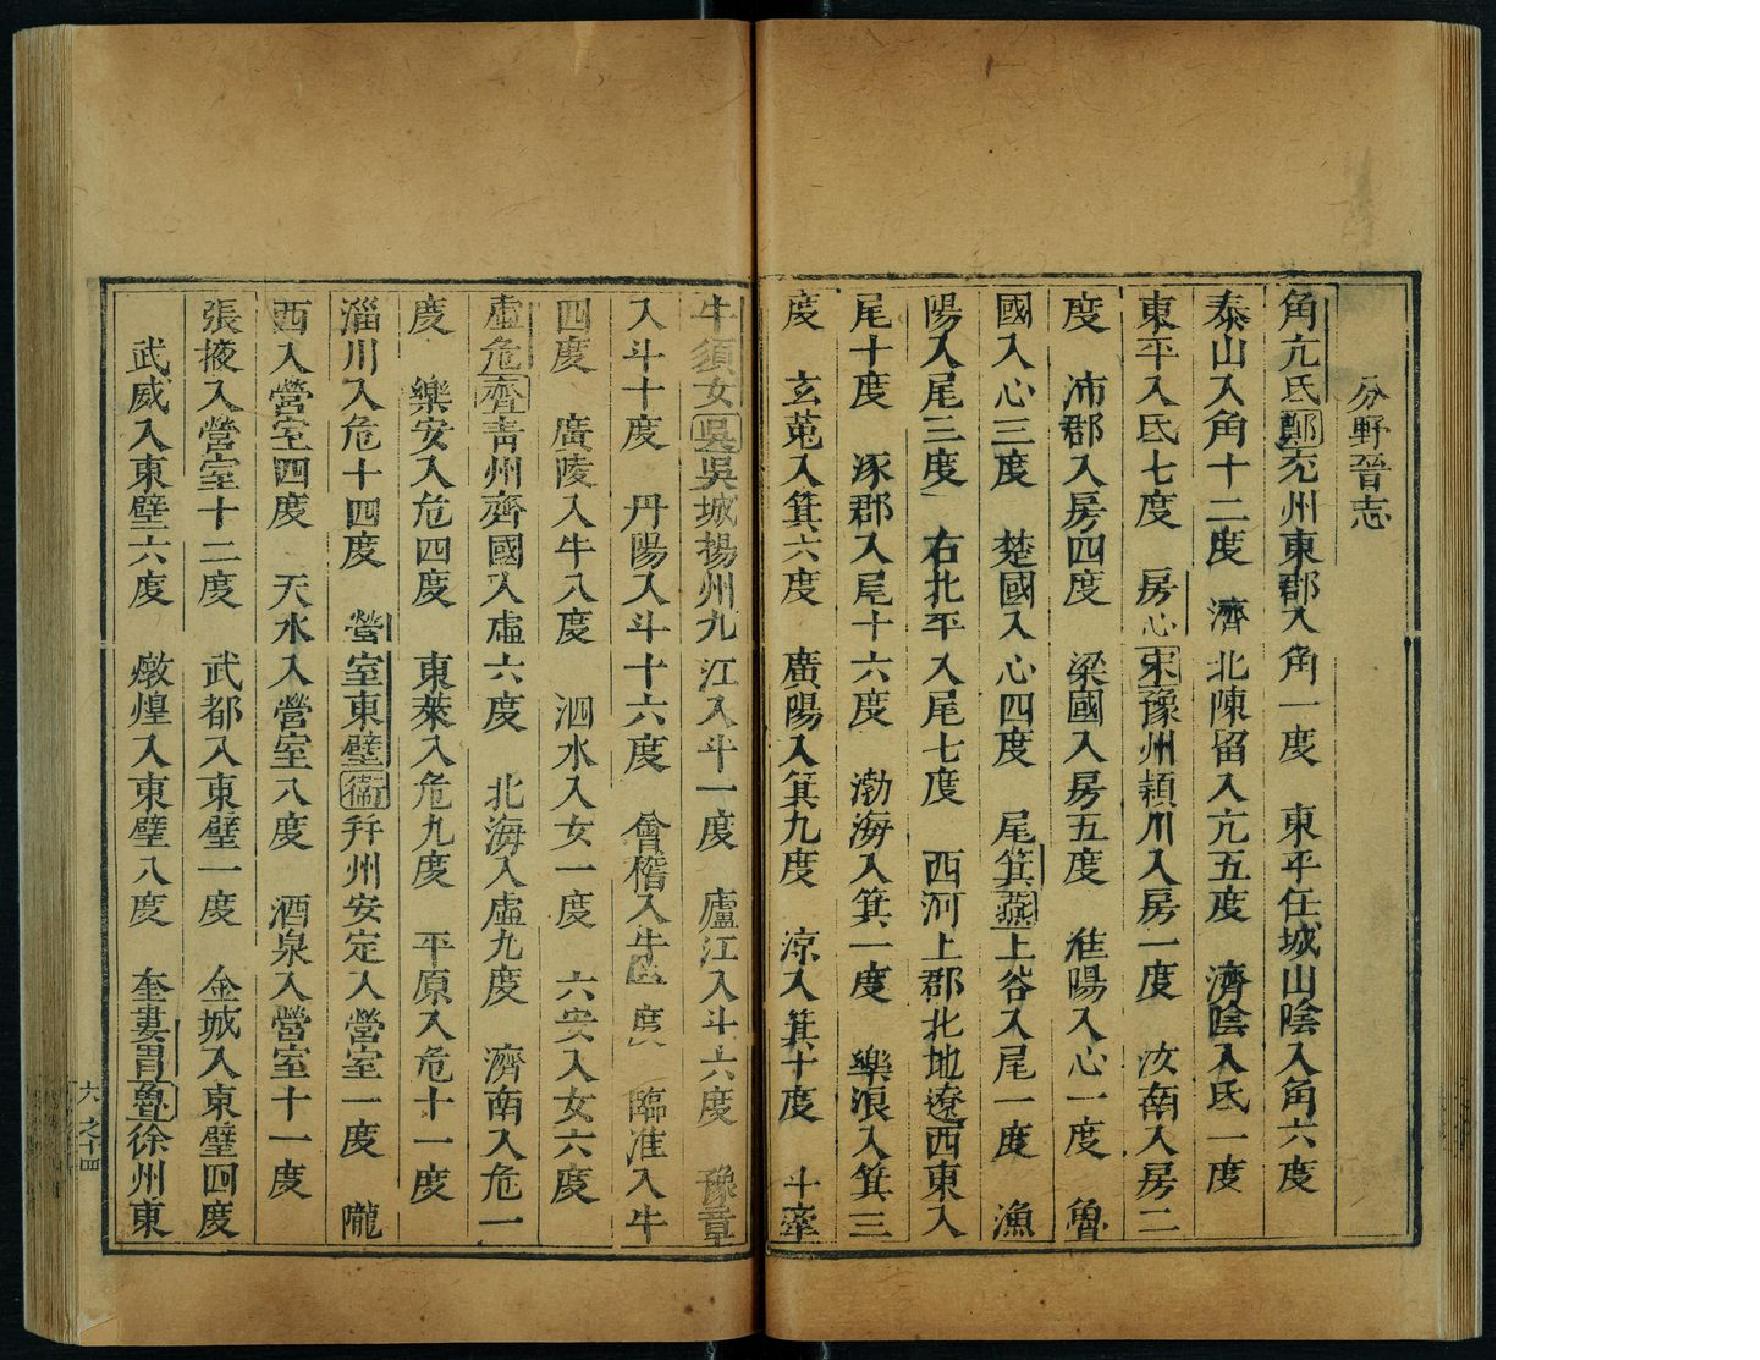 分野晉志
角亢氐鄭兖州東郡入角一度　東平任城山陰入角六度
泰山入角十二度　濟北陳留入亢五度　濟陰入氐一度
東平入氐七度　房心宋豫州潁川入房一度　汝南入房二
度　沛郡入房四度　梁國入房五度　淮陽入心一度　魯
國入心三度　楚國入心四度　尾箕燕上谷入尾一度　漁
陽入尾三度　右北平入尾七度　西河上郡北地遼西東入
尾十度　涿郡入尾十六度　渤海入箕一度　樂浪入箕三
度　玄菟入箕六度　廣陽入箕九度　涼入箕十度　斗牽
牛須女吳吳城揚州九江入斗一度　廬江入斗六度　豫章
入斗十度　丹陽入斗十六度　會稽入牛度　臨淮入牛
四度　廣陵入牛八度　泗水入女一度　六安入女六度
虛危齊青州齊國入虛六度　北海入虛九度　濟南入危一
度　樂安入危四度　東萊入危九度　平原入危十一度
淄川入危十四度　營室東壁衛并州安定入營室一度　隴
西入營室四度　天水入營室八度　酒泉入營室十一度
張掖入營室十二度　武都入東壁一度　金城入東壁四度
武威入東壁六度　燉煌入東壁八度　奎婁胃魯徐州東
六之十四